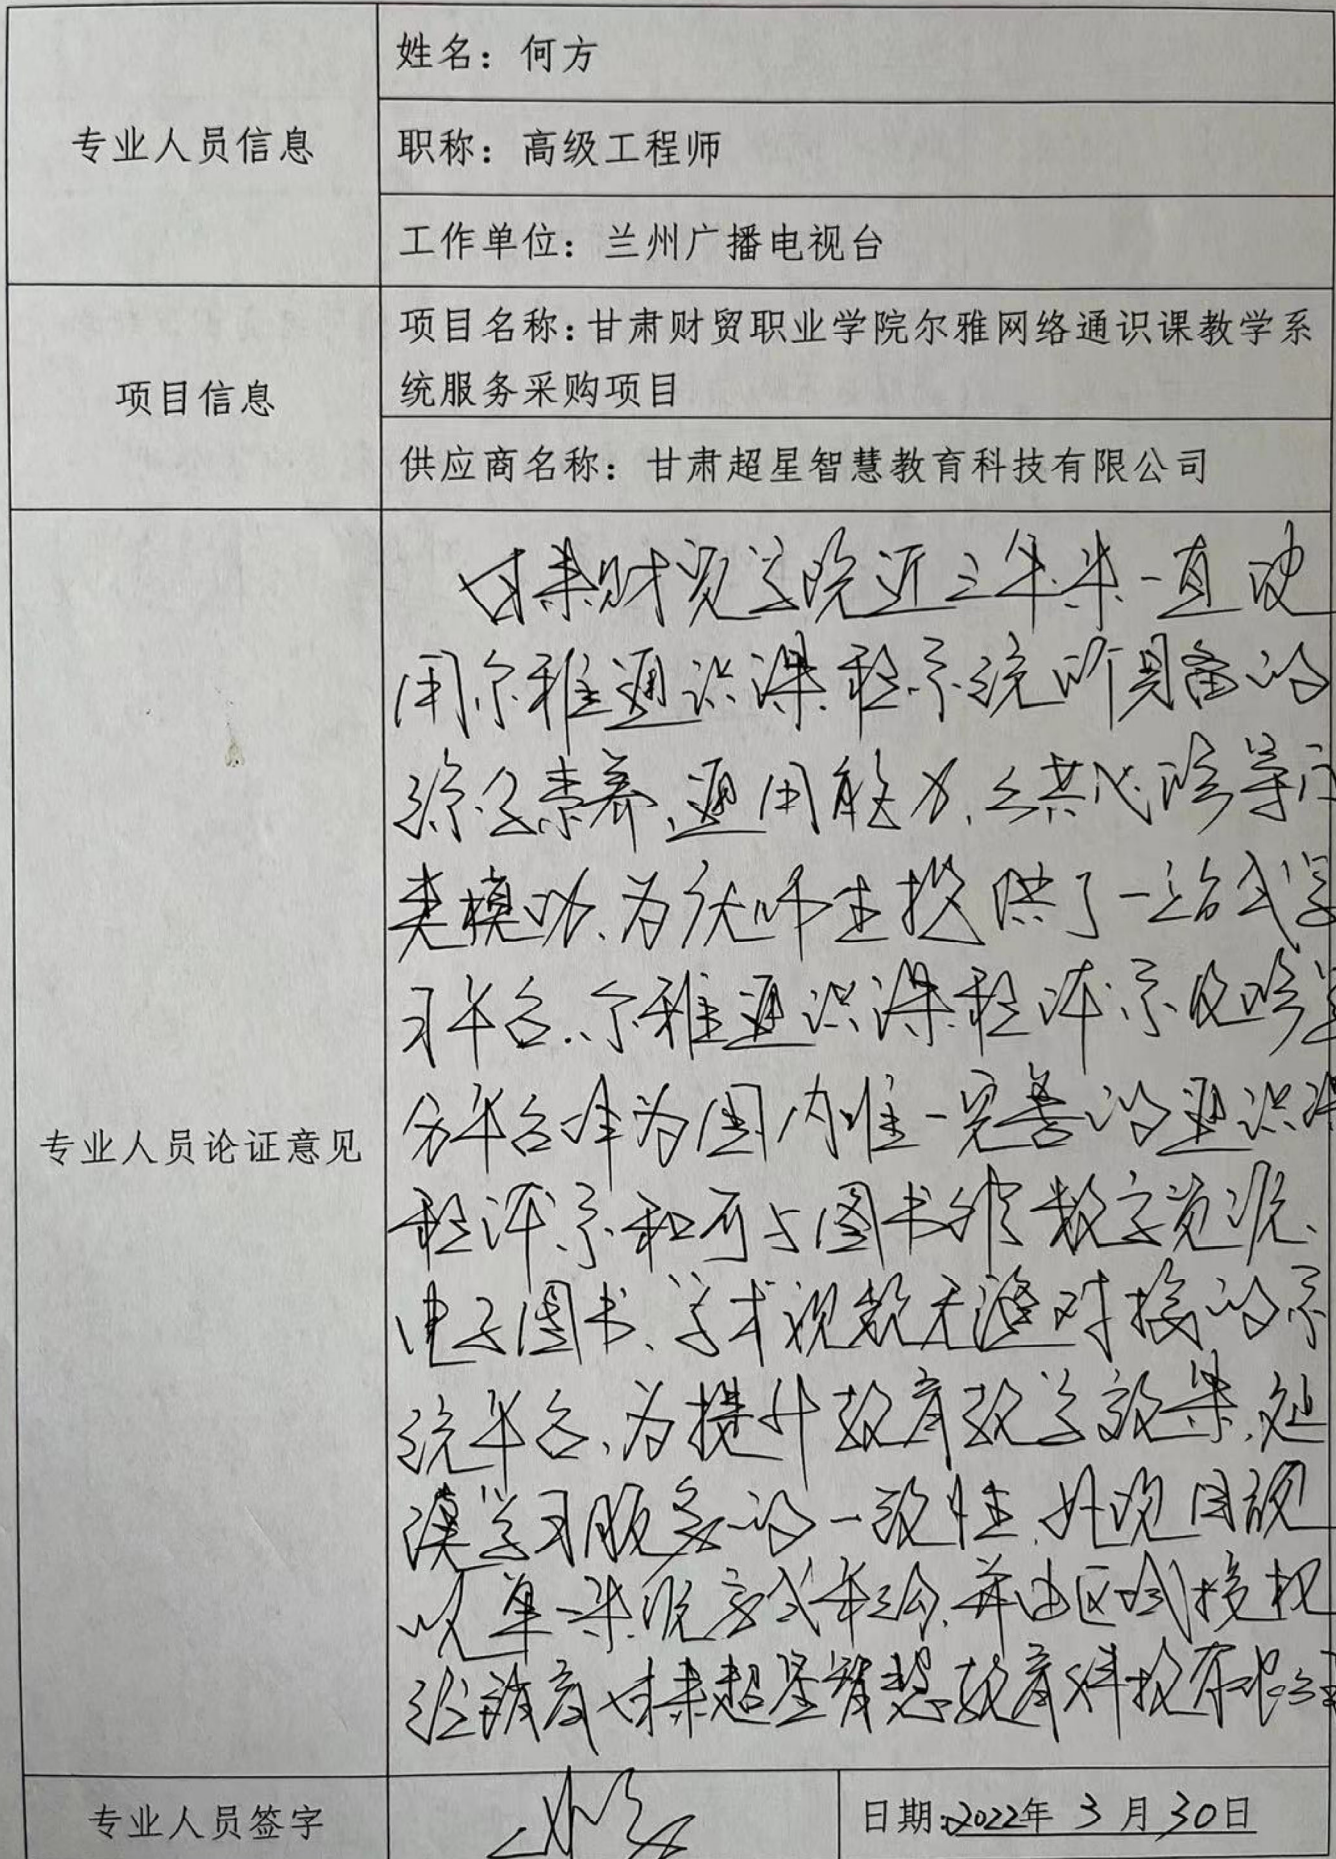 姓名：何方
专业人员信息
职称：高级工程师
工作单位：兰州广播电视台
项目信息
项目名称：甘肃财贸职业学院尔雅网络通识课教学系
统服务采购项目
供应商名称：甘肃超星智慧教育科技有限公司
专业人员论证意见
甘肃财贸学院近三年来一直使
用尔雅通识课程系统所具备的
综合素养、通用能力、公共心
类模块、为广大师生提供了一站式学
习平台.尔雅通识课程体系及跨学
分平台作为国内唯一完善的通识课
程体系和可与图书馆数字资源、
电子图书、学术视频无缝对接的系
统平台、为提升教育教学效果,
学习服务的一致性,
以单一来源方式采购,并由区域授权
经销商甘肃超星智慧教育科技有限公司
专业人员签字
日期:2022年3月30日